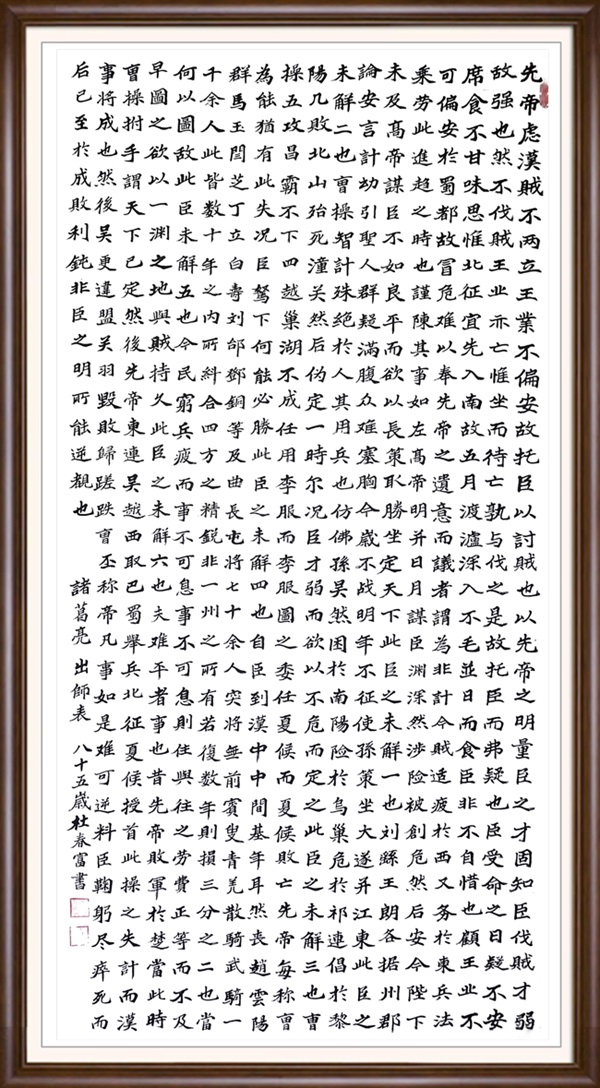 先帝虑漢贼不两立王業不偏安故托臣以討贼也以先帝之明量臣之才固知臣伐贼才弱
敌强也然不伐贼王业亦亡惟坐而待亡孰与伐之是故托臣而弗疑也臣受命之日疑不安
席食不甘味思惟北征宜先入南故五月渡瀘深入不毛並日而食臣非不自惜也顧王业不
可偏安於蜀都故冒危难以奉先帝之遺意而議者謂為非計今贼适疲於西又务於東兵法
乘劳此進趋之時也謹陳其事如左高帝明并日月謀臣渊深然涉险被創危然后安今陛下
未及高帝謀臣不如良平而欲以長策取勝坐定天下此臣之未解一也刘繇王朗各据州郡
論安言計幼引聖人群疑滿腹众难塞胸今嵗不战明年不征使孫策坐大遂并江東此臣之
未解二也曹操智計殊絶於人其用兵也仿佛孫吴然困於南陽险於乌巢危於祁連倡於黎
陽几败北山殆死潼关然后伪定一時尔况臣才弱而欲以不危而定之此臣之未解三也曹
操五攻昌霸不下四越巢湖不成任用李服而李服圖之委任夏候而夏侯敗亡先帝每称曹
為能猶有此失况臣駑下何能必勝此臣之未解四也自臣到漢中中間基年耳然丧趙雲陽
群馬玉閆芝丁立白壽刘郃鄧銅等及曲長屯將七十余人突將無前賓叟青羌散騎武騎一
千余人此皆数十年之内所糾合四方之精鋭非一州之所有若復数年則損三分之二也當
何以圖敌此臣未解五也今民窮兵疲而事不可息事不可息則住與往之劳費正等而不及
早圖之欲以一渊之地與贼持久此臣之未解六也夫难平者事也昔先帝敗軍於楚當此時
曹操拊手謂天下已定然後先帝東連吴越西取巴蜀舉兵北征夏侯授首此操之失計而漢
事将成也然後吴更違盟关羽毀敗歸蹉跌曹丕称帝凡事如是难可逆料臣鞠躬尽瘁死而
后已至於成敗利鈍非臣之明所能逆覩也
諸葛亮 出師表 八十五嵗杜春富書